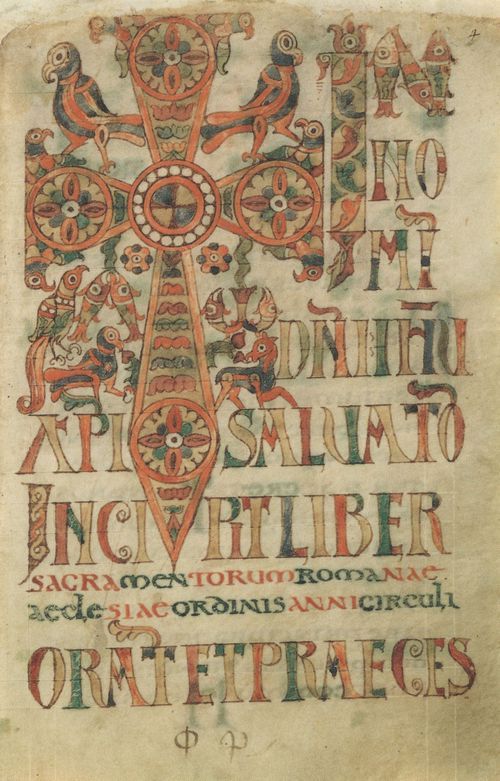 4
IN
NO
MĪ
DÑI IHŪ
XPI SALUATŌ
INCIPIT LIBER
SACRAMENTORUM ROMANAE
AECLESIAE ORDINIS ANNI CIRCULI
ORAT ET PRAECES